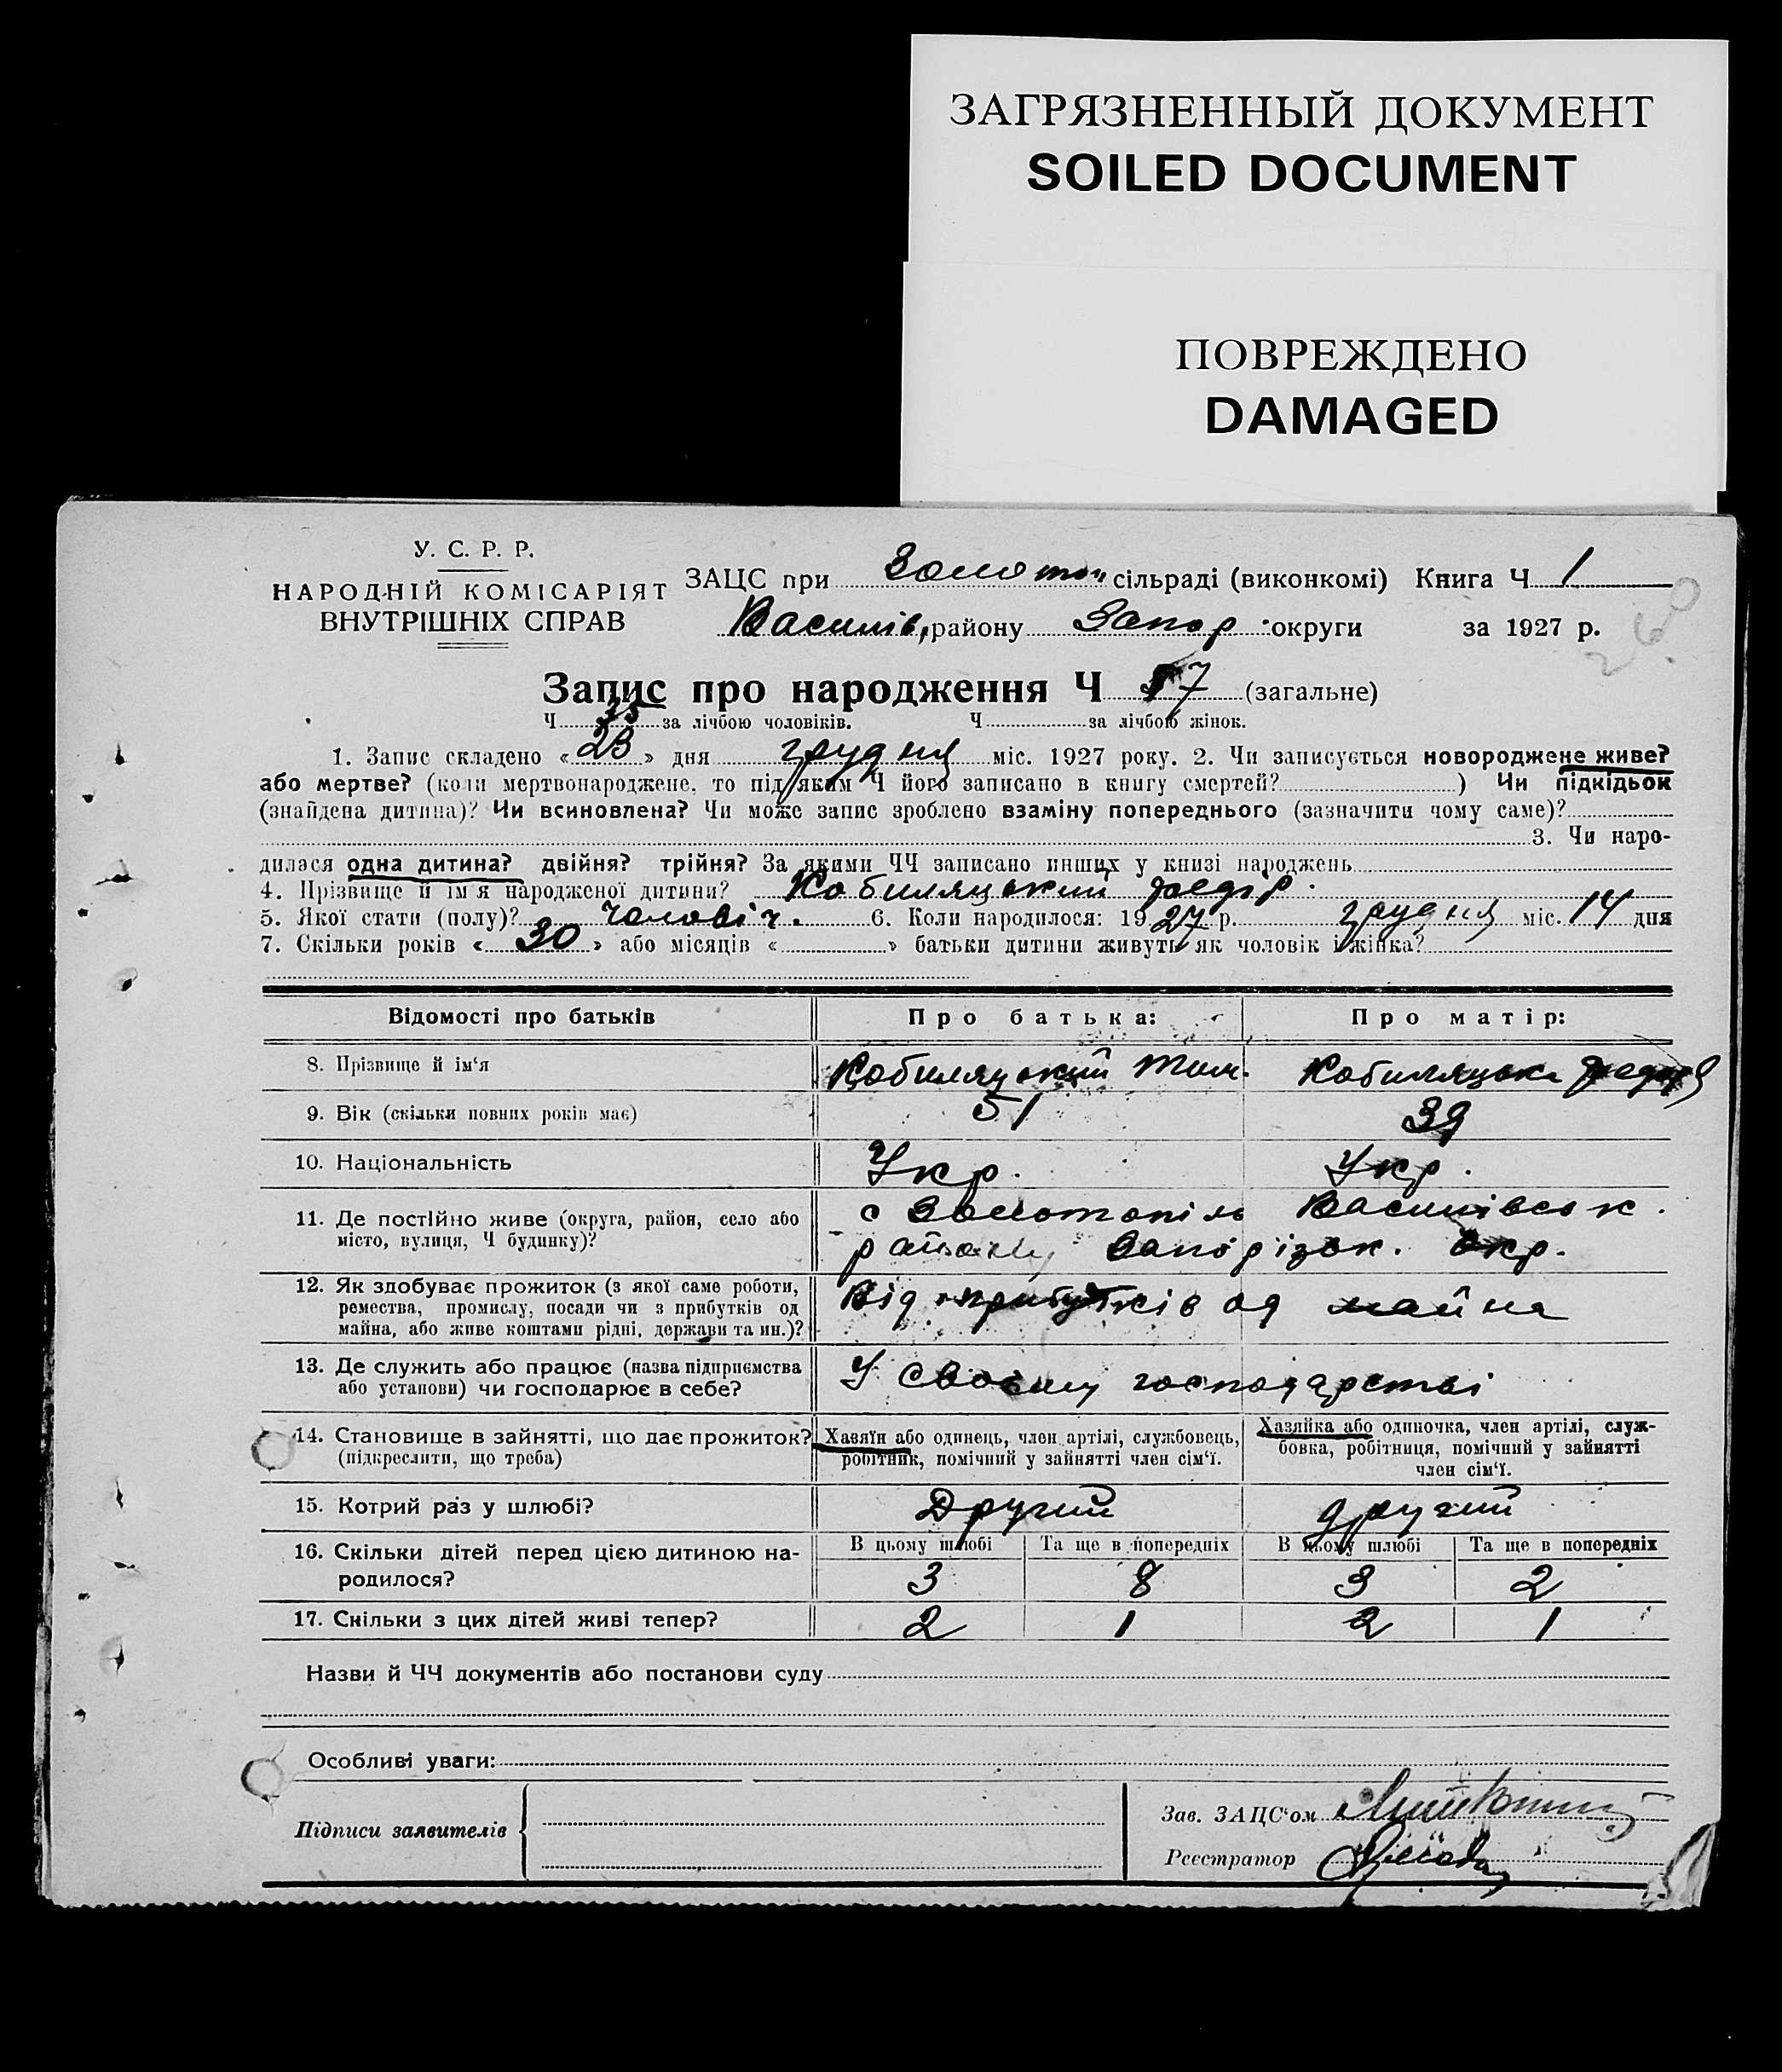 ЗАГРЯЗНЕННЫЙ ДОКУМЕНТ
SOILED DOCUMENT
ПОВРЕЖДЕНО
DAMAGED
У. С. Р. Р.
НАРОДНІЙ КОМІСАРІЯТ
ВНУТРІШНІХ СПРАВ
ЗАЦС при Золотоп сільраді (виконкомі) Книга Ч 1
Василів, району Запор. округи за 1927 р.
Запис про народження Ч 57 (загальне)
Ч 35 за лічбою чоловіків. Ч за лічбою жінок.
1. Запис складено «23» дня грудня міс. 1927 року. 2. Чи записується новороджене живе?
або мертве? (коли мертвонароджене, то під яким Ч його записано в книгу смертей? ) Чи підкідьок
(знайдена дитина)? Чи всиновлена? Чи може запис зроблено взаміну попереднього (зазначити чому саме)?
3. Чи наро-
дилася одна дитина? двійня? трійня? За якими ЧЧ записано инших у книзі народжень
4. Прізвище й ім'я народженої дитини? Кобиляцький Федір.
5. Якої стати (полу)? чоловіч. 6. Коли народилося: 1927 р. грудня міс. 14 дня
7. Скільки років «30» або місяців « » батьки дитини живуть як чоловік і жінка?
Відомості про батьків Про батька: Про матір:
8. Прізвище й ім'я Кобиляцький Тим. Кобиляцька
9. Вік (скільки повних років має) 51 39
10. Національність Укр. Укр.
11. Де постійно живе (округа, район, село або с Золотопіль Василівськ.
місто, вулиця, Ч будинку)? району Запорізьк. Окр.
12. Як здобуває прожиток (з якої саме роботи, Від прибутків од майна
ремества, промислу, посади чи з прибутків од
майна, або живе коштами рідні, держави та ин.)?
13. Де служить або працює (назва підприємства У своєму господарстві
або установи) чи господарює в себе?
14. Становище в зайнятті, що дає прожиток? Хазяїн або одинець, член артілі, службовець, Хазяйка або одиночка, член артілі, служ-
(підкреслити, що треба) робітник, помічний у зайнятті член сім'ї. бовка, робітниця, помічний у зайнятті
член сім'ї.
15. Котрий раз у шлюбі? Другий другий
16. Скільки дітей перед цією дитиною на- В цьому шлюбі Та ще в попередніх В цьому шлюбі Та ще в попередніх
родилося? 3 8 3 2
17. Скільки з цих дітей живі тепер? 2 1 2 1
Назви й ЧЧ документів або постанови суду
Особливі уваги:
Підписи заявителів
Зав. ЗАЦС'ом
Реєстратор